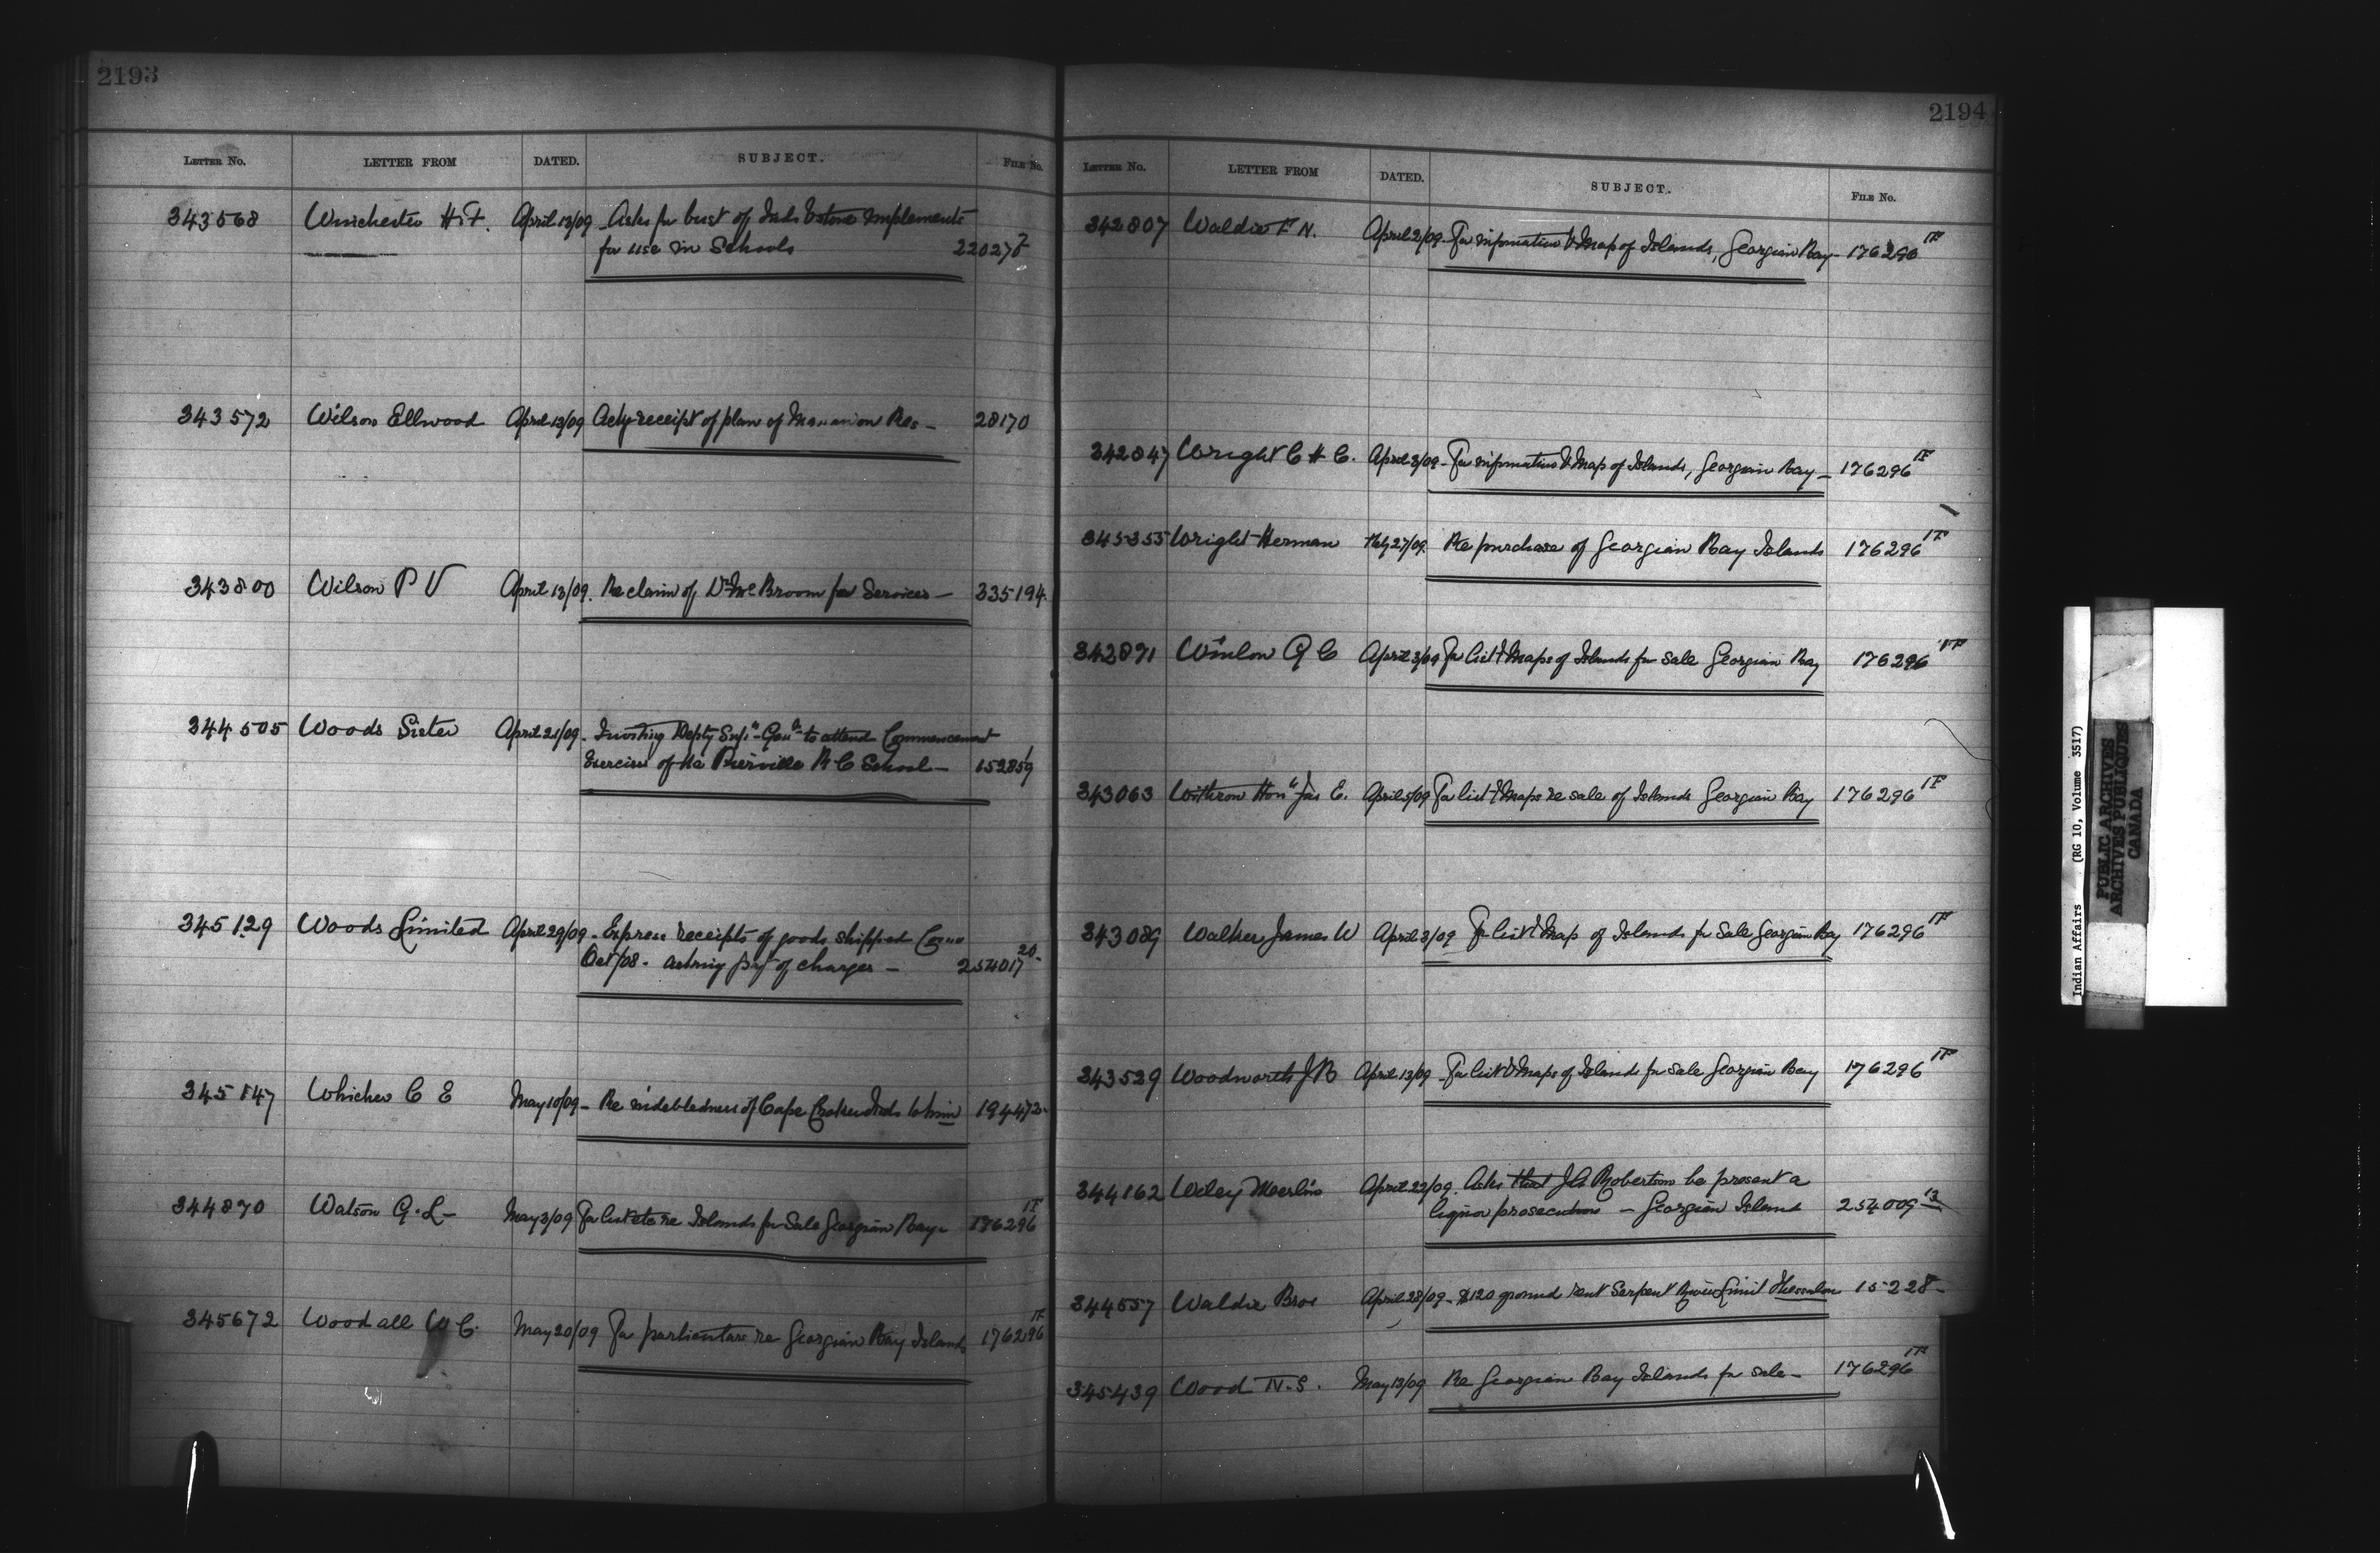 2193
LETTER NO. LETTER FROM DATED. SUBJECT. FILE NO.
343568 Winchester H.F. April 13/09 Asks for bust of Inds & stone implements
for use in Schools 22027
343572 Wilson Ellwood April 13/09 Ackg receipt of plan of Res - 28170
343800 Wilson P V April 13/09. Re claim of Dr McBroom for Services - 335194.
344505 Woods Sister April 21/09. Inviting Depty Supt Genl to attend Commencement
Exercises of the Pierreville R C School - 152859
345129 Woods Limited April 29/09. Express receipts of goods shipped
Oct/08. asking pyt of charges - 254017 20.
345147 Whicher C E May 10/09 - Re indebtedness of Cape Croker Inds to him 194472.
344870 Watson G. L - May 3/09 For list etc re Islands for Sale Georgian Bay - 176296 1F
345672 Woodall W C. May 20/09 For particulars re Georgian Bay Islands 176296 1F
2194
LETTER NO. LETTER FROM DATED. SUBJECT. FILE NO.
342807 Waldie F N. April 2/09. For information & Map of Islands, Georgian Bay - 176296 1F
342847 Wright C H C. April 3/09 - For information & Map of Islands, Georgian Bay - 176296 1F
345355 Wright Herman 27/09. Re purchase of Georgian Bay Islands 176296 1F
342891 G C April 3/09 For list & Maps of Islands for sale Georgian Bay 176296 1F
343063 Withrow Hon Jas E. April 5/09 For list & Maps re sale of Islands Georgian Bay 176296 1F
343089 Walker James W April 3/09 For list & Map of Islands for Sale Georgian Bay 176296 1F
343529 Woodworth J B April 13/09 For list & Maps of Islands for sale Georgian Bay 176296 1F
344162 Wiley Merlin April 22/09. Asks that J A Robertson be present a
liquor prosecution - Georgian Island 254009 13
344557 Waldie Bros April 28/09 - $120 ground rent Serpent River Limit Thessalon 15228 -
345439 Wood N. S. May 13/09 Re Georgian Bay Islands for sale - 176296 1F
Indian Affairs (RG 10, Volume 3517)
PUBLIC ARCHIVES
ARCHIVES PUBLIQUES
CANADA